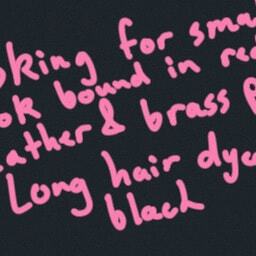 oking for sma
ok bound in re
eather & brass
Long hair dye
black